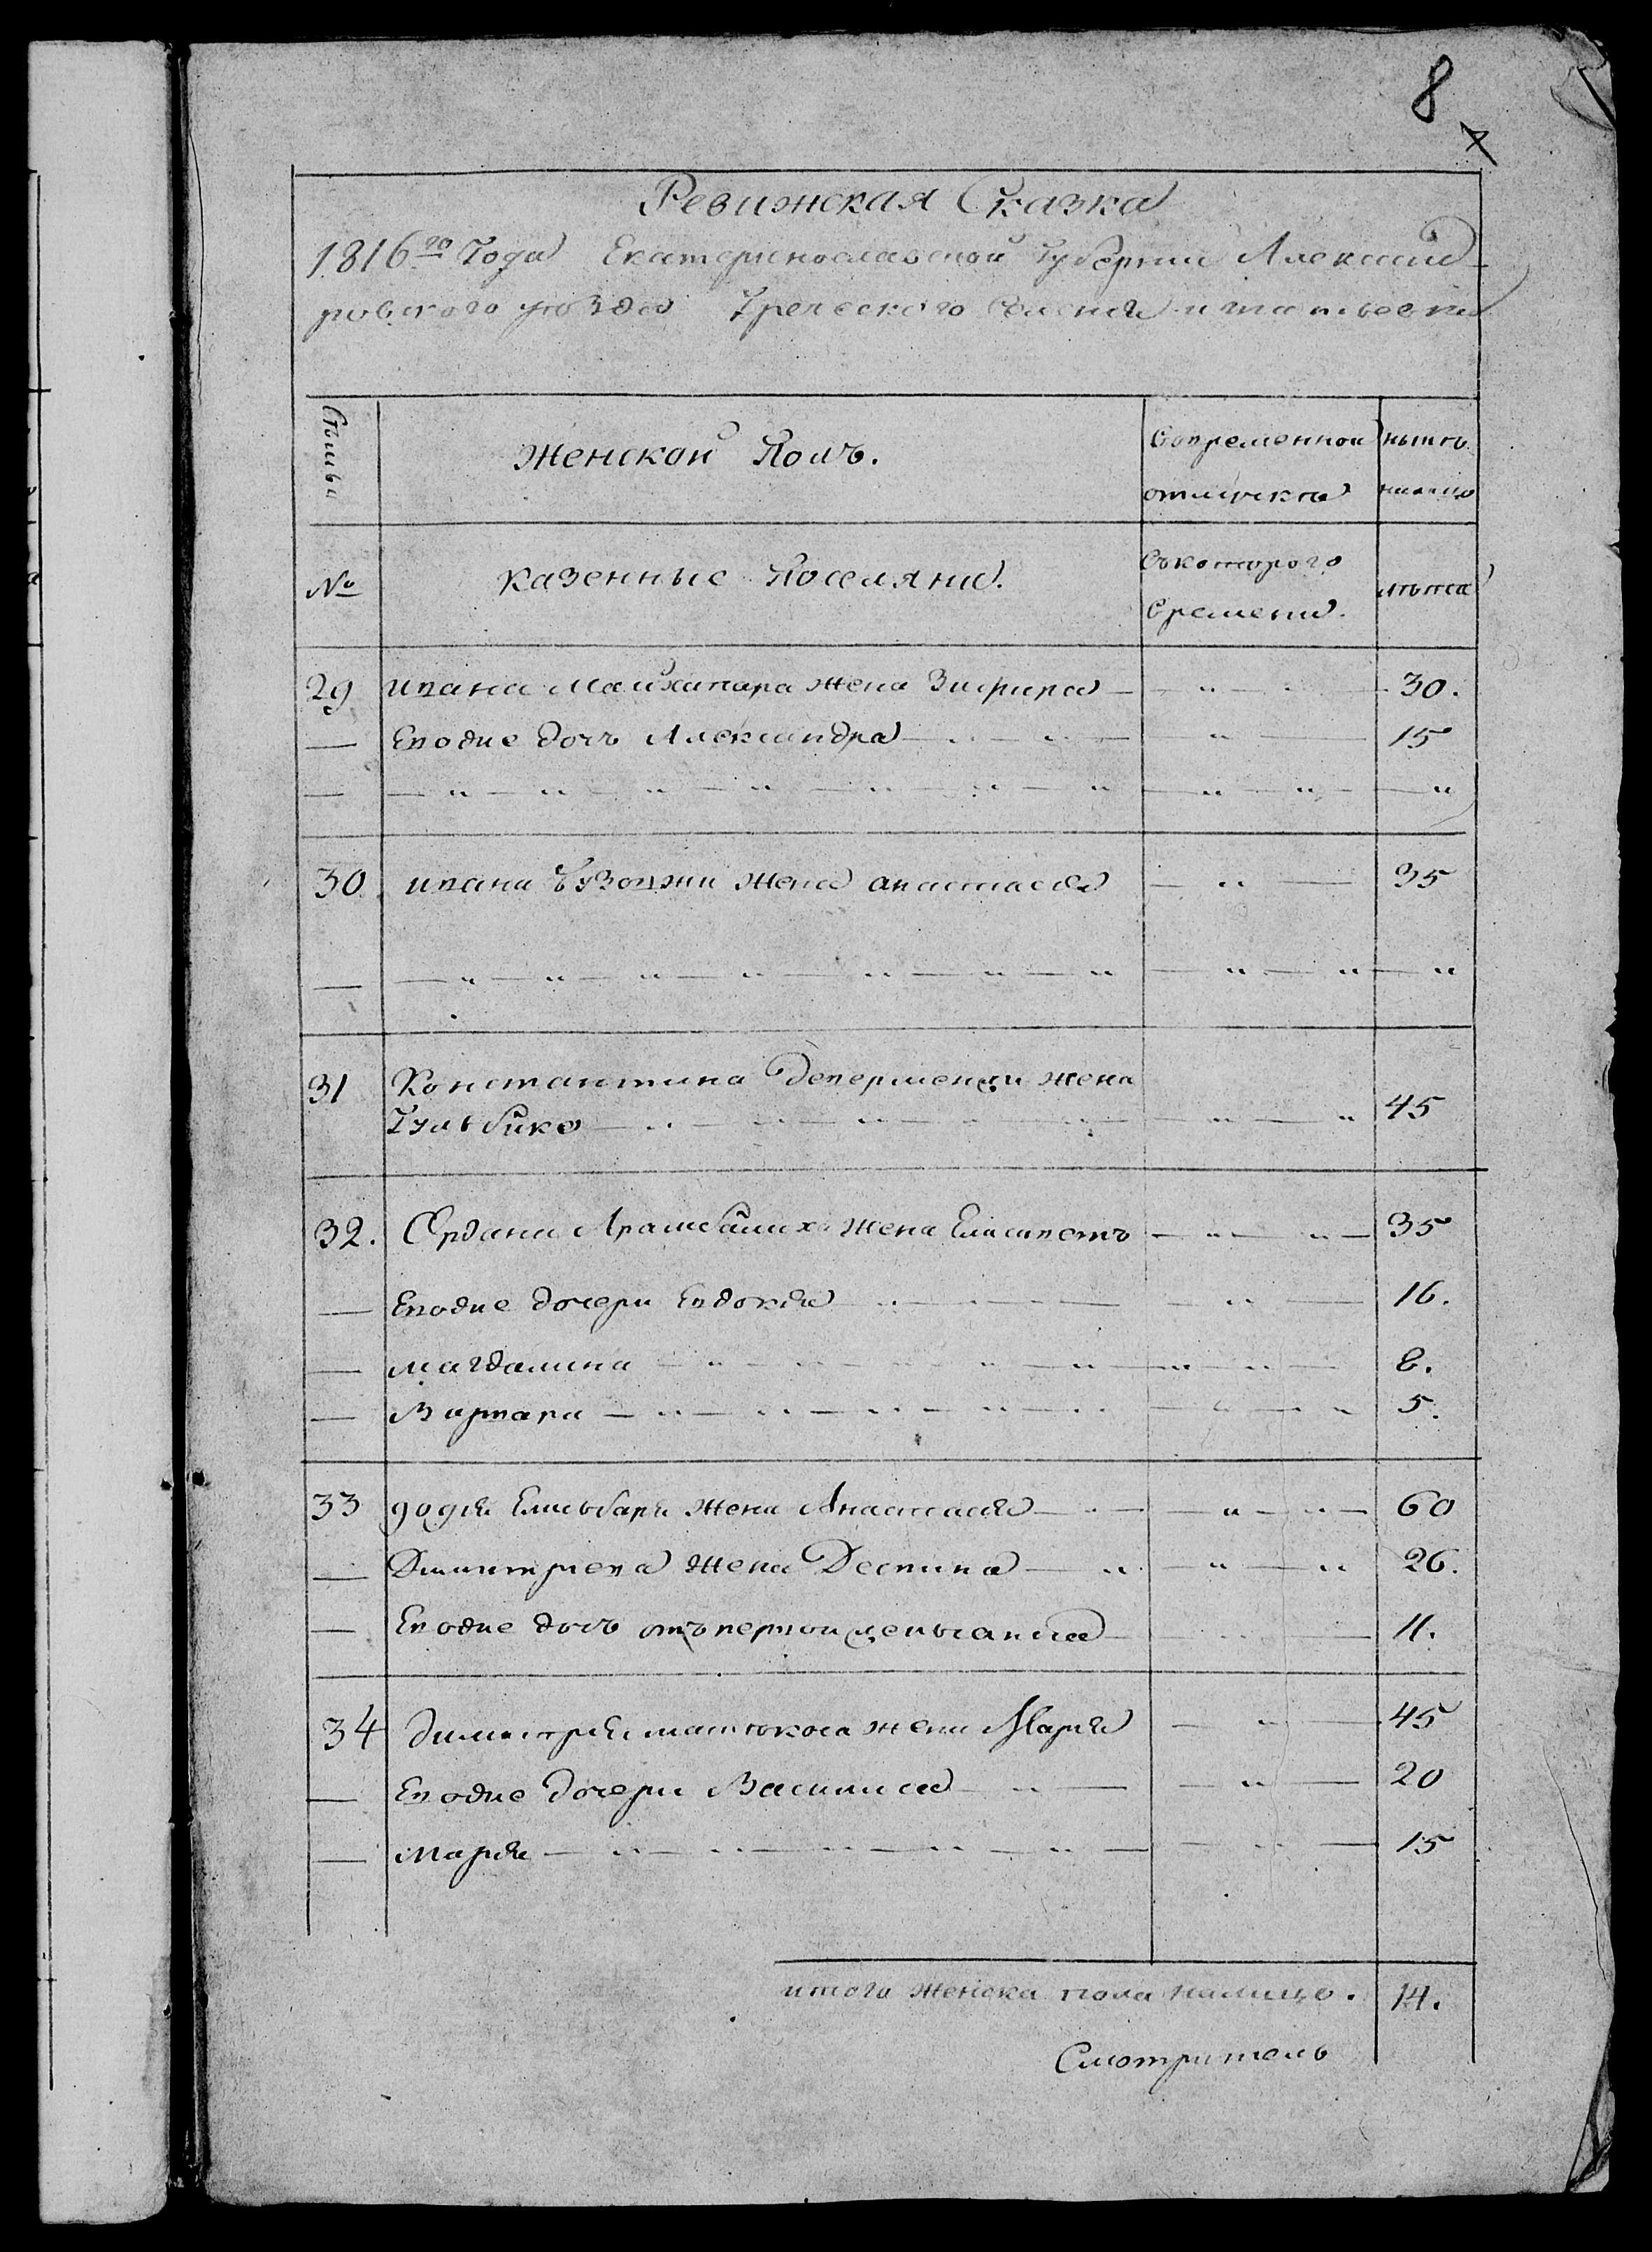 8
Ревижская Сказка
1816го Года Екатеринославской Губернии Алексан
ровского уезда Греческого селения
Семьи
Женской Полъ.
Вовременной
отлучки
ныне
налицо
№
казенные Поселяни.
Съкоторого
времени.
лѣта
29 Ивана Майхапара жена Зафира — " — 30.
— Еводие дочь Александра — " — 15
— — " — " — " — " — " — " — " — " — " — "
30. ивана жена анастасія — " — 35
— — " — " — " — " — " — " — " — " — " — "
31 Константина Деверменци жена
Гульбике — " — " — 45
32. Жена Елисаветъ — " — " — 35
— Еводие дочери Евдокія — " — 16.
— магдалина — " — " — 8.
— Варвара — " — " — 5.
33 жена Анастасія — " — 60
— Димитриева жена Деспина — " — " 26.
— Еводие дочь отъпервой — 11.
34 димитрія жена Марія — " — 45
— Еводие дочери Василиса — " — 20
— марія — " — " — 15
итого женска пола налицо. 14.
Смотритель